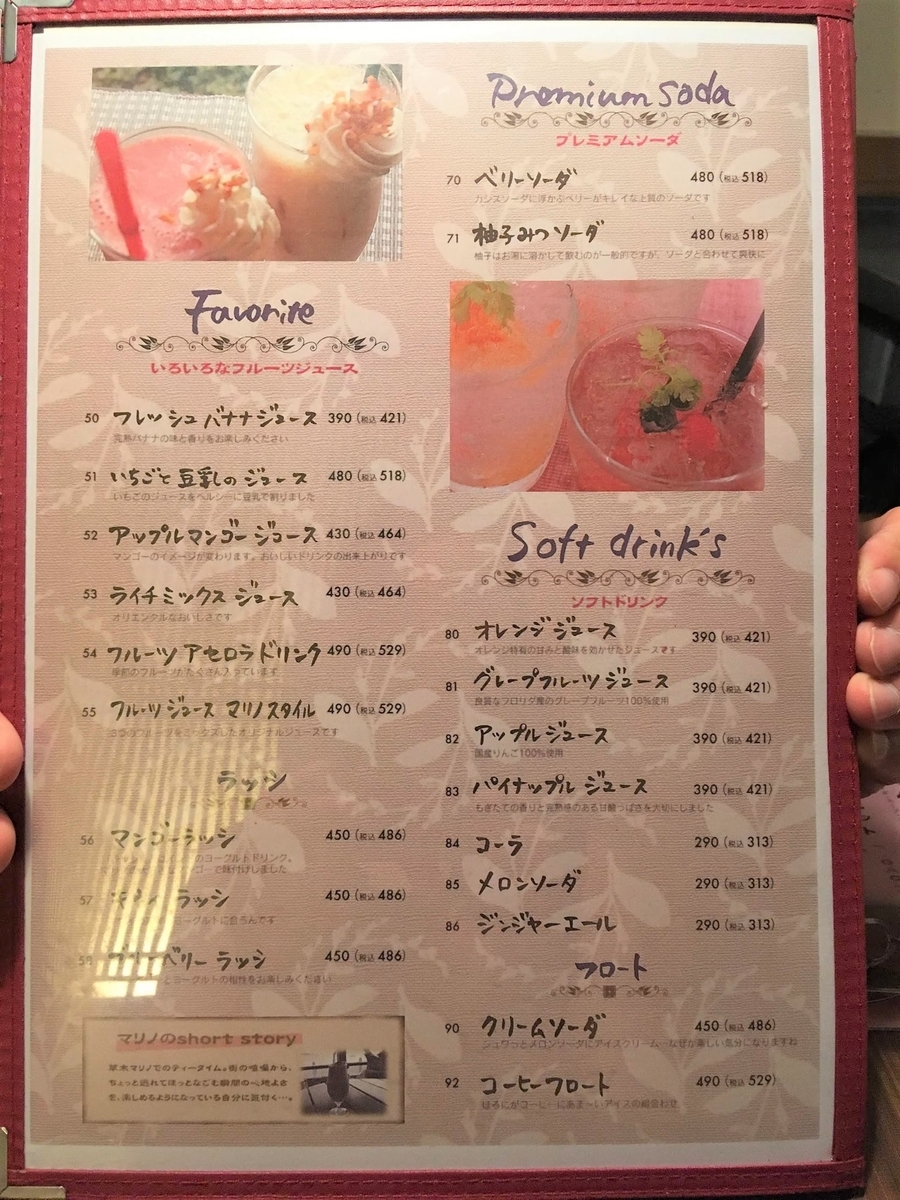 Favorite
いろいろなフルーツジュース
50 フレッシュバナナジュース 390 (税込 421)
完熟バナナの味と香りをお楽しみください
51 いちごと豆乳のジュース 480 (税込 518)
いちごのジュースをヘルシーに豆乳で割りました
52 アップルマンゴージュース 430 (税込 464)
マンゴーのイメージが変わります。おいしいドリンクの出来上がりです
53 ライチミックスジュース 430 (税込 464)
オリエンタルなおいしさです
54 フルーツアセロラドリンク 490 (税込 529)
季節のフルーツがたくさん入っています
55 フルーツジュース マリノスタイル 490 (税込 529)
3つのフルーツをミックスしたオリジナルジュースです
ラッシ
56 マンゴーラッシ 450 (税込 486)
のヨーグルトドリンク。
で味付けしました
57 ラッシ 450 (税込 486)
ヨーグルトに合うんです
58 ブルーベリーラッシ 450 (税込 486)
とヨーグルトの相性をお楽しみください
マリノのshort story
草木マリノでのティータイム。街の喧噪から、
ちょっと逃れてほっとなごむ瞬間の心地よさ
を、楽しめるようになっている自分に気付く…。
Premium Soda
プレミアムソーダ
70 ベリーソーダ 480 (税込 518)
カシスソーダに浮かぶベリーがキレイな上質のソーダです
71 柚子みつソーダ 480 (税込 518)
柚子はお湯に溶かして飲むのが一般的ですが、ソーダと合わせて爽快に
Soft drink's
ソフトドリンク
80 オレンジジュース 390 (税込 421)
オレンジ特有の甘みと酸味を効かせたジュースです
81 グレープフルーツジュース 390 (税込 421)
良質なフロリダ産のグレープフルーツ100%使用
82 アップルジュース 390 (税込 421)
国産りんご100%使用
83 パイナップルジュース 390 (税込 421)
もぎたての香りと完熟感のある甘酸っぱさを大切にしました
84 コーラ 290 (税込 313)
85 メロンソーダ 290 (税込 313)
86 ジンジャーエール 290 (税込 313)
フロート
90 クリームソーダ 450 (税込 486)
シュワっとメロンソーダにアイスクリーム…なぜか楽しい気分になりますね
92 コーヒーフロート 490 (税込 529)
ほろにがコーヒーにあま〜いアイスの組合わせ